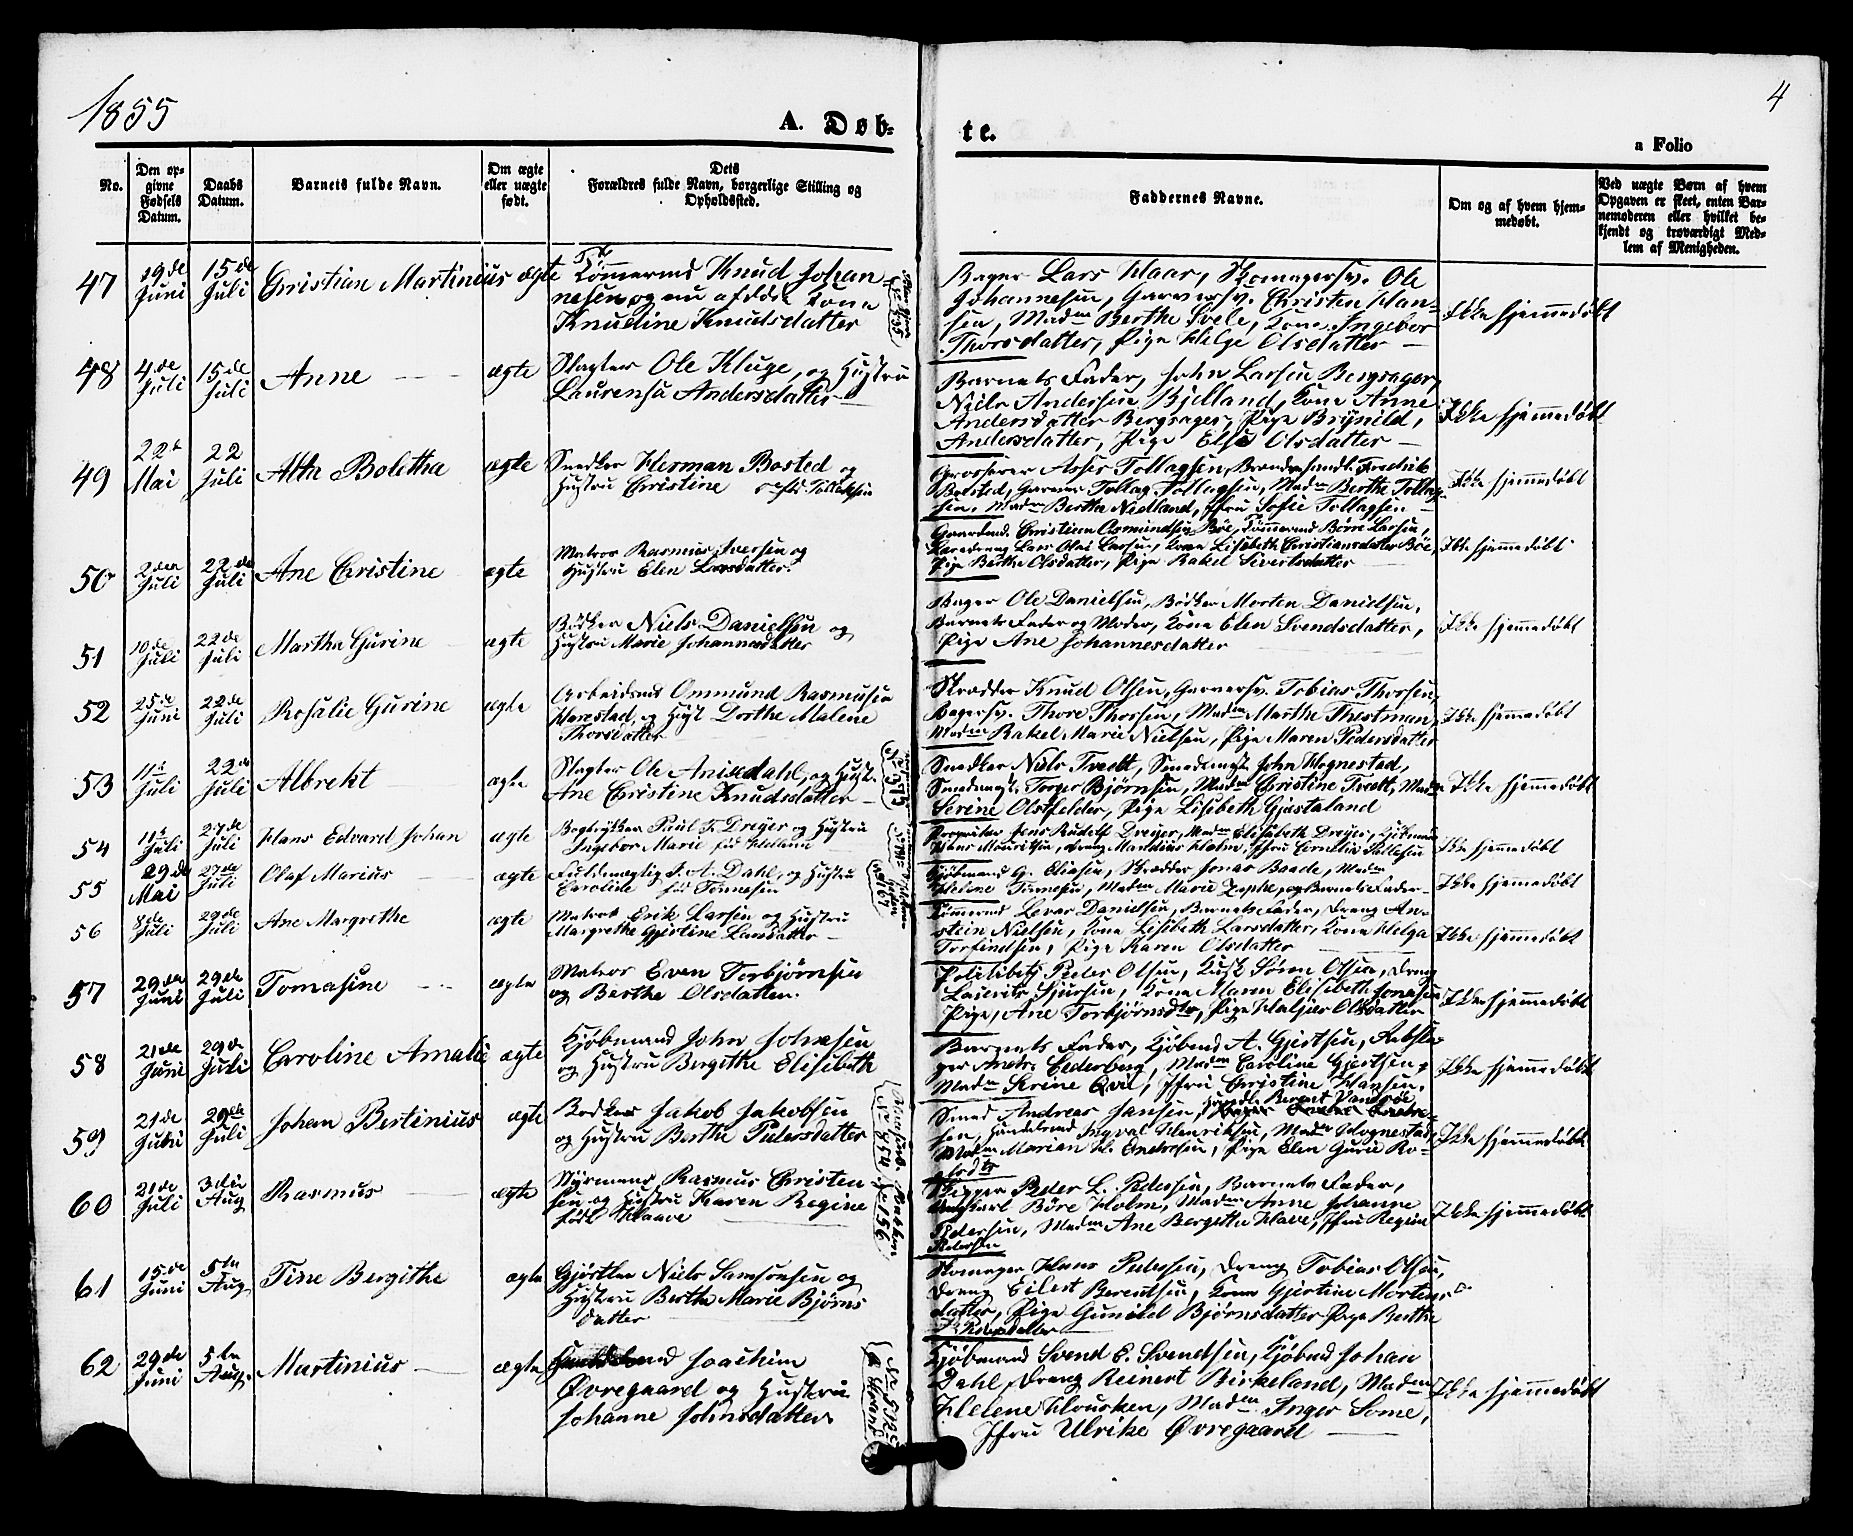 1855
A. Døb-
te.
4
a Folio
No.
Den op-
givne
Fødsels
Datum.
Daabs
Datum.
Barnets fulde Navn.
Om ægte
eller uægte
født.
Dets
Forældres fulde Navn, borgerlige Stilling og
Opholdssted.
Faddernes Navne.
Om og af hvem hjem-
medøbt.
Ved uægte Børn af hvem
Opgaven er skeet, enten Bar-
nemoderen eller hvilket be-
kjendt og troværdigt Med-
lem af Menigheden.
47
19de
Juni
15de
Juli
Christian Martinius
ægte
Tømmermd Knud Johan
nesen og nu afdøde Kone
Knudine Knudsdatter
Bager Lars Haar, Skomagersv. Ole
Johannesen, Garversv. Christen Han-
sen, Madm Berthe Svele, Kone Ingebor
Thorsdatter, Pige Helge Olsdatter
Ikke hjemmedøbt
48
4de
Juli
15de
Juli
Anne
ægte
Slagter Ole Kluge, og Hustru
Laurensa Andersdatter
Barnets Fader, John Larsen Bergsager,
Niels Andersen Bjelland, Kone Anne
Andersdatter Bergsager, Pige Brynild,
Andersdatter, Pige Else Olsdatter
Ikke hjemmedøbt
49
22
Mai
22
Juli
Alta Boletha
ægte
Snedker Herman Bosted og
Hustru Christine født Tollaksen
Grosserer Asser Tollagsen, Fredrik
Bosted, Garver Tollag Tollagsen, Madm Berthe Tollag-
sen, Madm Bertha Nedland, Jfru Sofie Tollagsen
Ikke hjemmedøbt
50
2den
Juli
22de
Juli
Ane Christine
ægte
Matros Rasmus Iversen og
Hustru Elen Larsdatter.
Christian Osmundsen Bøe, Tømmermd Børre Larsen,
Læredreng Lars Olai Larsen, Kone Lisabeth Christiansdatter Bøe,
Pige Berthe Olsdatter, Pige Rakel Sivertsdatter
Ikke hjemmedøbt
51
10de
Juli
22de
Juli
Martha Gurine
ægte
Bødker Niels Danielsen og
Hustru Marie Johannesdatter
Bager Ole Danielsen, Bødker Morten Danielsen,
Barnets Fader og Moder, Kone Elen Svendsdatter,
Pige Ane Johannesdatter
Ikke hjemmedøbt
52
25de
Juni
22de
Juli
Rosalie Gurine
ægte
Arbeidsmd Ommund Rasmusen
Harestad, og Hust Dorthe Malene
Thorsdatter
Skrædder Knud Olsen, Garversv. Tobias Thorsen,
Bagersv. Thore Thorsen, Madm Marthe Thestman,
Madm Rakel Marie Nielsen, Pige Maren Pedersdatter
Ikke hjemmedøbt
53
11te
Juli
22de
Juli
Albrekt
ægte
Slagter Ole Anisdahl, og Hust.
Ane Christine Knudsdatter
Snedker Niels Tvedt, John Hognestad,
Torger Bjørnsen, Madm Christine Tvedt, Madm
Serine Olstfelder, Pige Lisibeth Gjestaland
Ikke hjemmedøbt
54
11te
Juli
27de
Juli
Hans Edvard Johan
ægte
Bogtrykker Paul T. Dreyer og Hustru
Ingebor Marie født
Jens Rudolf Dreyer, Madm Elisabeth Dreyer,
Ikke hjemmedøbt
55
29de
Mai
27de
Juli
Olaf Marius
ægte
Fuldmægtig J. A. Dahl, og Hustru
Caroline født Tønnesen
Kjøbmand G. Eliasen, Skrædder Jonas Baade, Madm
Helene Tønnesen, Madm Marie og Barnets Fader
Ikke hjemmedøbt
56
8de
Juli
29de
Juli
Ane Margrethe
ægte
Matros Erik Larsen og Hustru
Margrethe Gjertine Larsdatter
Tømmermd Levar Danielsen, Barnets Fader, Dreng An-
stein Nielsen, Kone Lisibeth Larsdatter, Kone Helga
Torfindsen, Pige Karen Olsdatter
Ikke hjemmedøbt
57
29de
Juni
29de
Juli
Tomasine
ægte
Matros Even Torbjørnsen
og Berthe Olsdatter.
Politibetj Peder Olsen, Kusk Sønn Olsen, Dreng
Lauritz Sjursen, Kone Maren Elisebeth Jonasen
Pige, Ane Torbjørnsdtr, Pige Olsdatter
Ikke hjemmedøbt
58
21de
Juni
29de
Juli
Caroline Amalie
ægte
Kjøbmand John Johnsen
og Hustru Bergithe Elisibeth
Barnets Fader, Kjøbmd A. Gjertsen, Rebsla-
ger Andr. Cederberg, Madm Caroline Gjertsen,
Madm Serine Qvil, Jfru Christine Hansen.
Ikke hjemmedøbt
59
21de
Juni
29de
Juli
Johan Bertinius
ægte
Bødker Jakob Jakobsen
og Hustru Berthe Pedersdatter
Smed Andreas Jansen, Handl. Berent Vandsøe
sen, Handelsmd Ingval Henriksen, Madm Hognestad,
Madm Marian H. Endresen, Pige Elen Gurie Ro-
Ikke hjemmedøbt
60
21de
Juli
3die
Aug
Rasmus
ægte
Styrmand Rasmus Christen
sen og Hustru Karen Regine
født Haave
Skipper Peder L. Pedersen, Barnets Fader,
Ungkarl Børe Holm, Madm Anne Johanne
Pedersen, Madm Ane Bergitha Have, Jfru Regine
Pedersen
Ikke hjemmedøbt
61
15de
Juni
5te
Aug
Tine Bergithe
ægte
Gjørtler Niels Samsonsen og
Hustru Berthe Marie Bjørns
datter
Skomager Hans Pedersen, Dreng Tobias Olsen,
Dreng Eilert Berentsen, Kone Gjertine Mortens
datter, Pige Gunild Bjørnsdatter Pige Berthe
Pedersdatter
62
29de
Juni
5te
Aug.
Martinius
ægte
Joachim
Øvregaard og Hustru
Johanne Johnsdatter
Kjøbmand Svend E. Svendsen, Kjøbmd Johan
Dahl, Dreng Reinert Birkeland, Madm
Helene Housken, Madm Inger Some,
Jfru Ulrike Øvregaard
Ikke hjemmedøbt